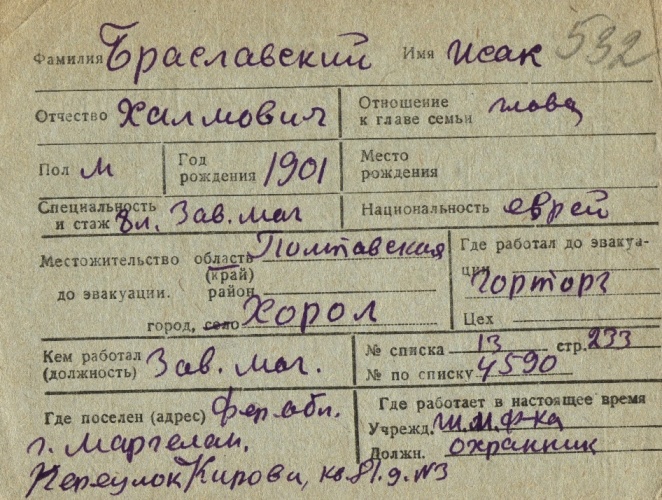 Фамилия Браславский Имя Исак 532
Отчество Халмович Отношение к главе семьи глава
Пол М Год рождения 1901 Место рождения
Специальность и стаж 8 л. Зав. маг Национальность еврей
Местожительство область Полтавская Где работал до эвакуа-
(край) ции Горторг
до эвакуации. район
город, село Хорол Цех
Кем работал (должность) Зав. маг. № списка 13 стр. 233
№ по списку 4590
Где поселен (адрес) Фер обл. Где работает в настоящее время
г. Маргелан. Учрежд. Ш.М.Ф-ка
Переулок Кирова, кв 81. д. №3 Должн. охранник